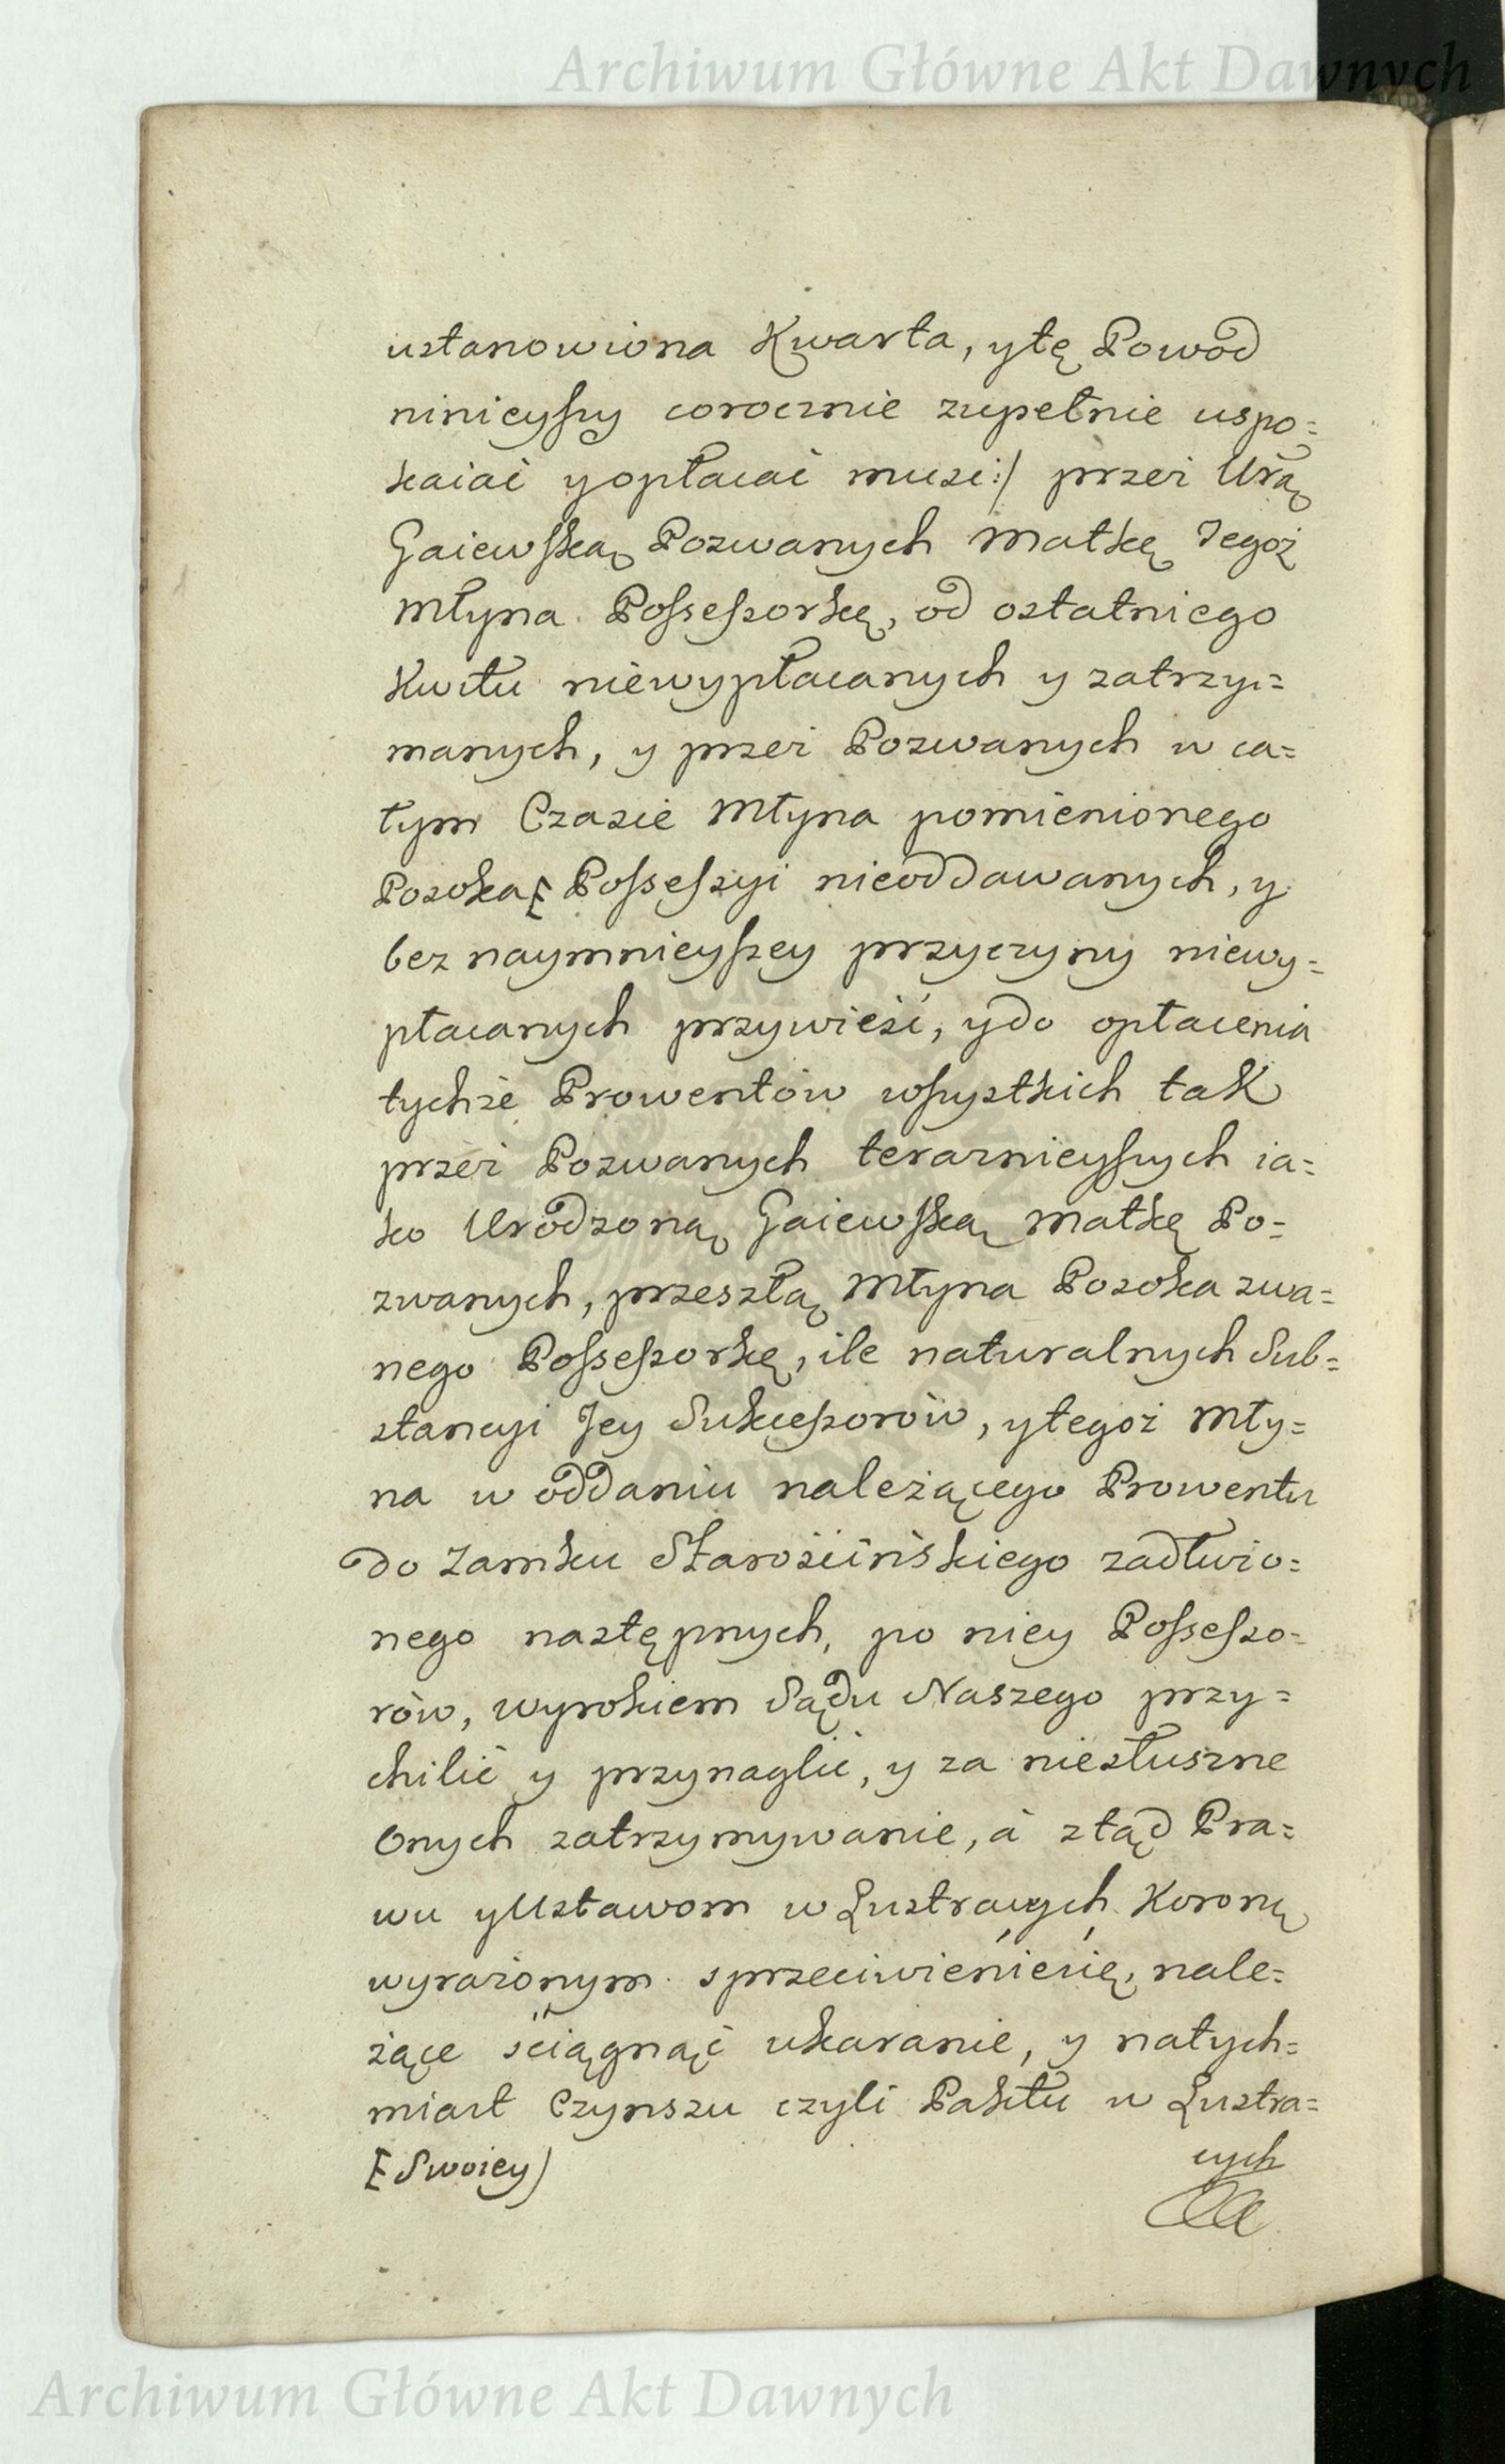 Archiwum Główne Akt Dawnych
ustanowiona Kwarta, y tę Powod
ninieyszy corocznie zupełnie uspo=
kaiać y opłacać musi :/ przez Urą
Gaiewską Pozwanych Matkę Tegoż
Młyna Possessorkę, od ostatniego
Kwitu niewypłacanych y zatrzy=
manych, y przez Pozwanych w ca=
łym Czasie Młyna pomienionego
Posoka [ Possessyi nieoddawanych, y
bez naymnieyszey przyczyny niewy=
płacanych przywieść, y do opłacenia
tychże Prowentów wszystkich tak
przez Pozwanych teraznieyszych ia=
ko Urodzoną Gaiewską Matkę Po=
zwanych, przeszłą Młyna Posoka zwa=
nego Possessorkę, ile naturalnych Sub=
stancyi Jey Sukcessorów, y tegoż Mły=
na w oddaniu należącego Prowentu
do Zamku Starościńskiego zadłużo=
nego następnych, po niey Possesso=
rów, wyrokiem Sądu Naszego przy=
chilić y przynaglić, y za niesłuszne
Onych zatrzymywanie, á ztąd Pra=
wu y Ustawom w Lustracyach Koronų
wyrażonym sprzeciwienie się, nale=
żące ściągnąć ukaranie, y natych=
miast Czynszu czyli Paktu w Lustra=
[ Swoiey)
cych
Archiwum Główne Akt Dawnych